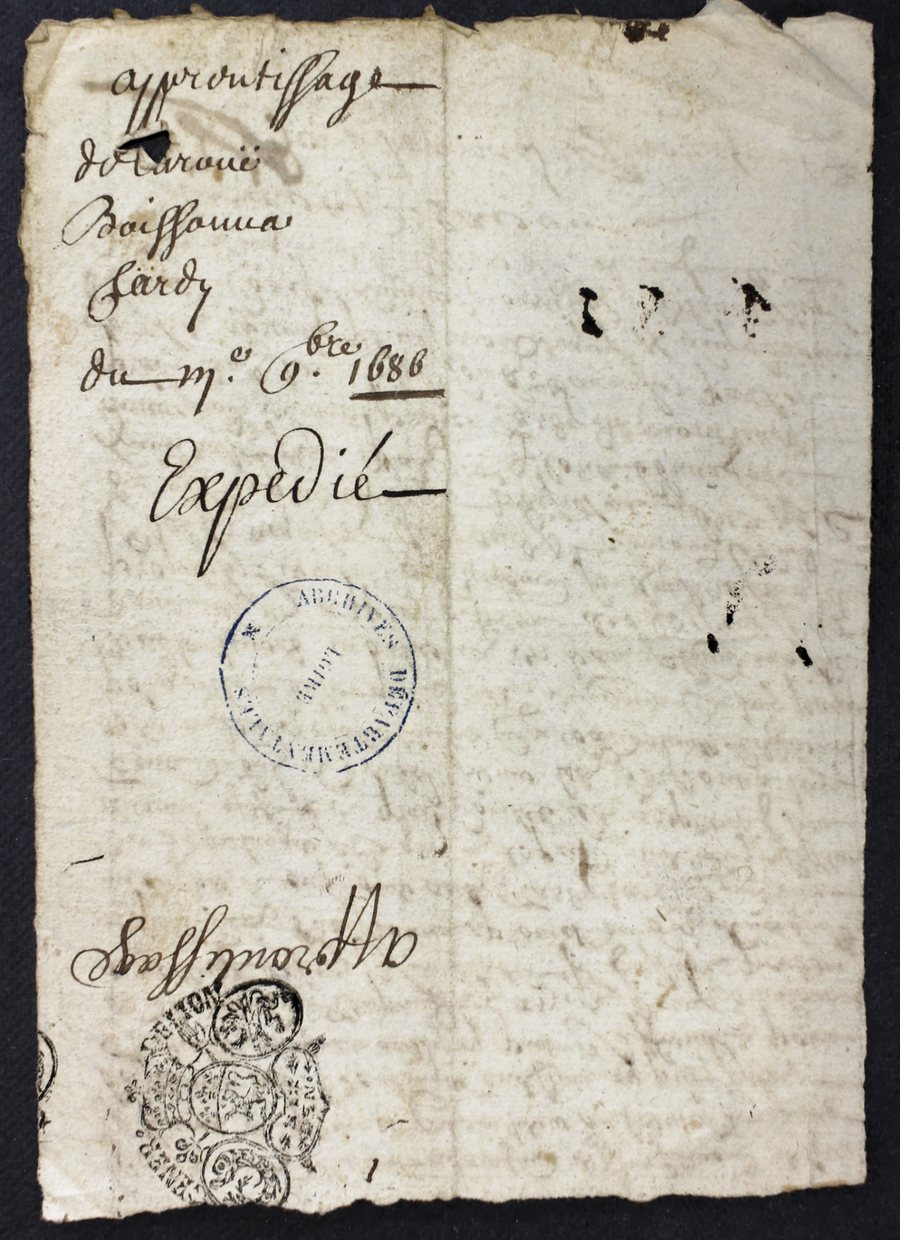 apprentissage
de
Boissonna
Sardy
du m.e 9.bre 1686
Expedié
ARCHIVES DÉPARTEMENTALES
LOIRE
apprentissage
DE LYON